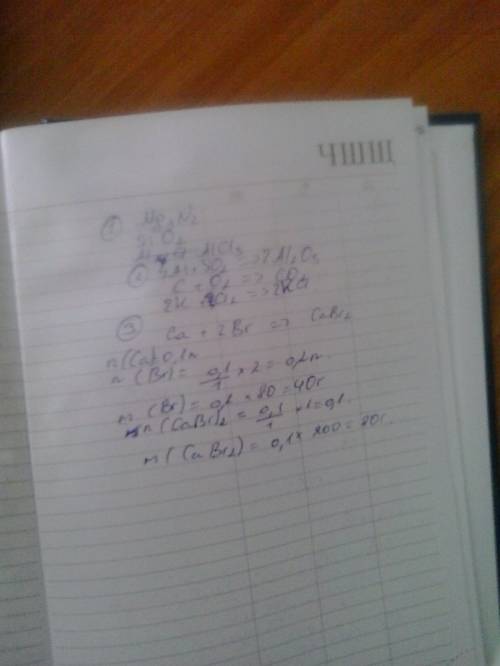 ЧШЩ
① Mg₃N₂
SiO₂
AlCl₃
② 4Al + 3O₂ => 2Al₂O₃
C + O₂ => CO₂
2K + Cl₂ => 2KCl
③ Ca + 2Br => CaBr₂
n(Ca)=0,1м
n (Br) = 0,1/1 × 2 = 0,2м.
m (Br) = 0,2 × 80 = 40г
n(CaBr)₂ = 0,1/1 × 1 = 0,1.
m (CaBr₂) = 0,1 × 200 = 20г.